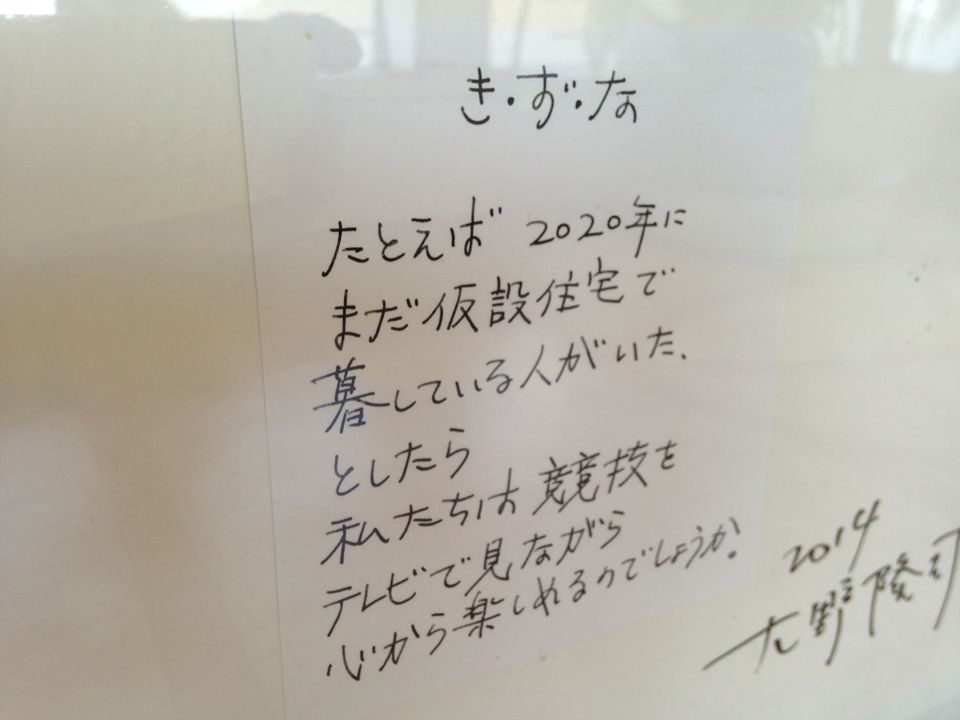 き・ず・な
たとえば 2020年に
まだ仮設住宅で
暮している人がいた、
としたら
私たちは競技を
テレビで見ながら
心から楽しめるのでしょうか。
2014
大野隆司